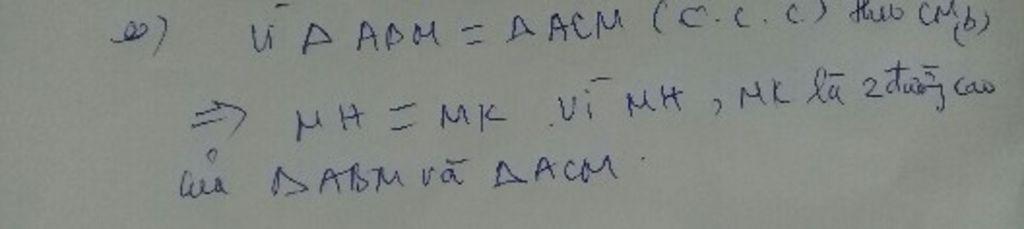 e) Vì Δ ABM = Δ ACM (c.c.c) theo CM b)
=> MH = MK. Vì MH, MK là 2 đường cao
của Δ ABM và Δ ACM.